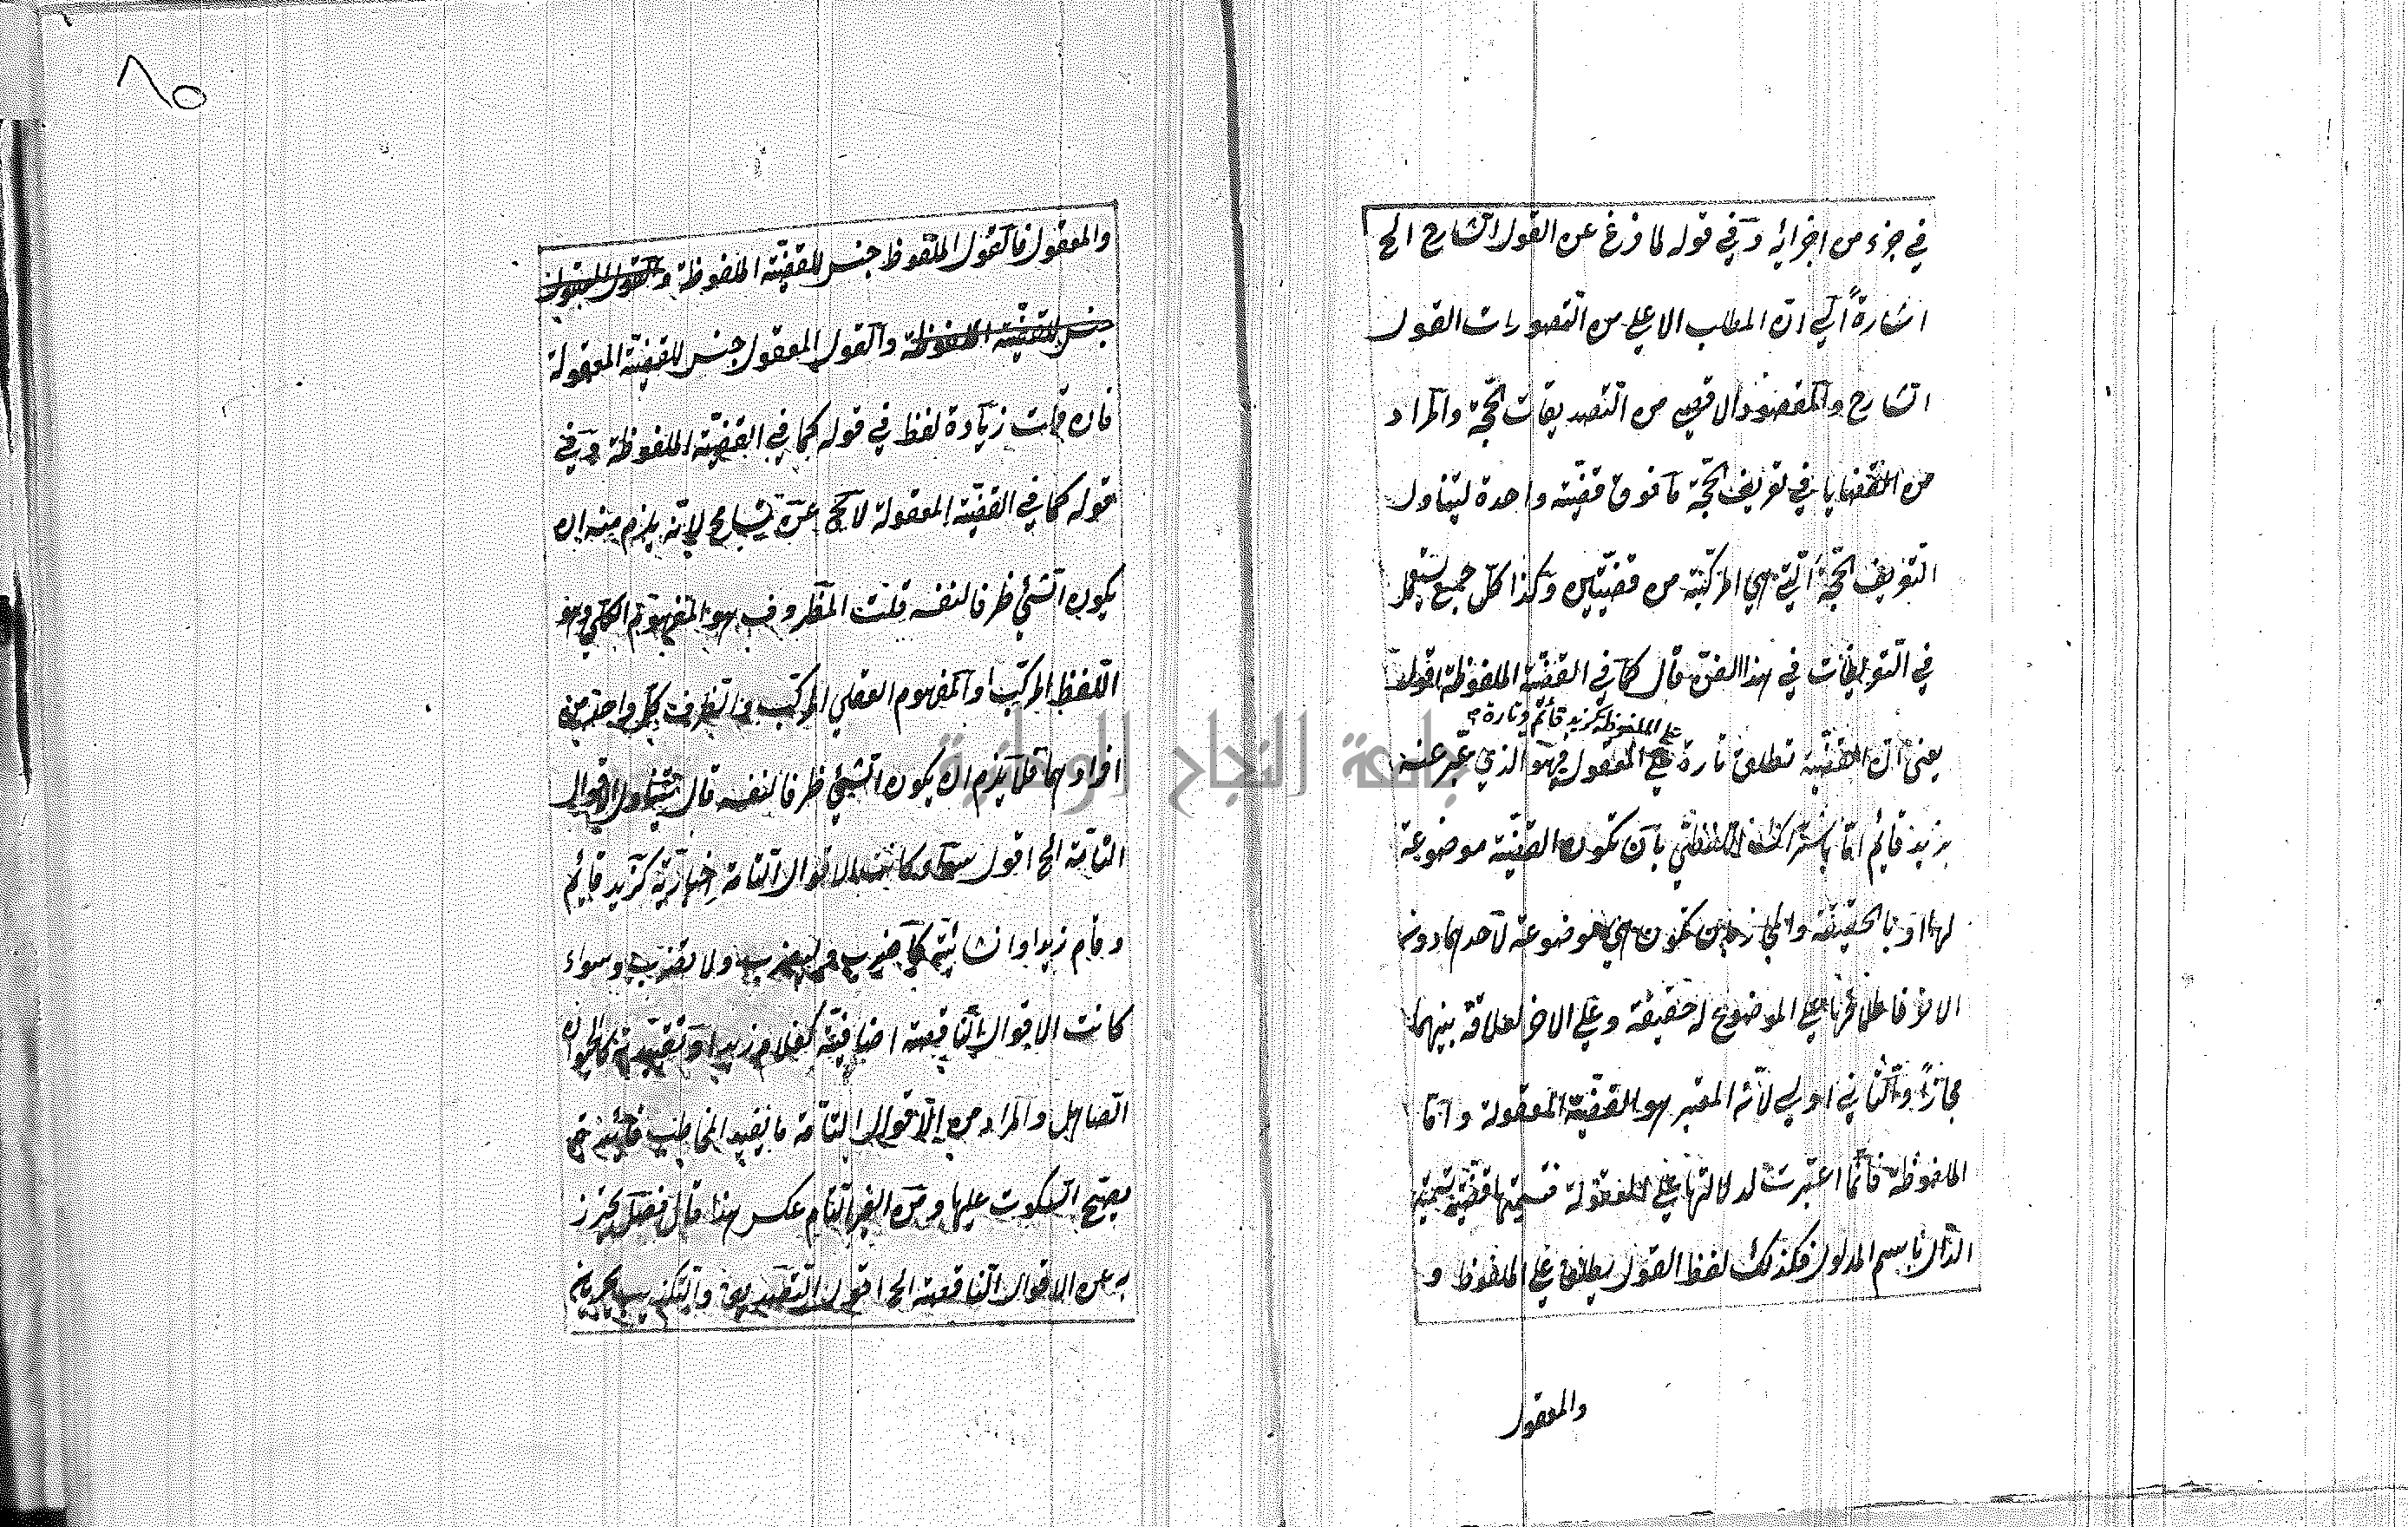 في جزء من اجزائه وفي قوله لما فرغ عن القول الشارح الخ
اشارة الى ان المطلب الاعلى من التصورات القول
الشارح والمقصود الاقصى من التصديقات الحجة والمراد
من القضايا في تعريف الحجة ما فوق قضية واحدة ليتناول
التعريف الحجة التي هي المركبة من قضيتين وكذا كل جمع يستعمل
في التعريفات في هذا الفن قال كما في القضية الملفوظة اقول
على الملفوظة كزيد قائم وتارة
يعني ان القضية تطلق تارة على المعقول فهو الذي عبر عنه
بزيد قايم اما باشتراك اللفظي بان تكون القضية موضوعة
لها او بالحقيقة والمجاز بان تكون هي موضوعة لاحدهما دون
الاخر فاطلاقها على الموضوع له حقيقة وعلى الاخر لعلاقة بينهما
مجازا والثاني اولى لان المعتبر هو القضية المعقولة واما
الملفوظة فانما اعتبرت لدلالتها على المعقولة فتسميتها قضية تسمية
الدال باسم المدلول فكذلك لفظ القول يطلق على الملفوظ و
والمعقول
٨٥
والمعقول فالقول الملفوظ جنس للقضية الملفوظة والقول المعقول
جنس للقضية الملفوظة والقول المعقول جنس للقضية المعقولة
فان قلت زيادة لفظ في قوله كما في القضية الملفوظة وفي
قوله كما في القضية المعقولة لا يخ عن تسامح لانه يلزم منه ان
يكون الشئ ظرفا لنفسه قلت المظروف هو المفهوم الكلي وهو
اللفظ المركب او المفهوم العقلي المركب والظرف كل واحد من
افرادهما فلا يلزم ان يكون الشئ ظرفا لنفسه قال يتناول الاقوال
التامة الخ اقول سواء كانت الاقوال التامة اخبارية كزيد قايم
وقام زيد او انشائية كاضرب وليضرب ولا تضرب وسواء
كانت الاقوال الناقصة اضافية كغلام زيد او تقييدية كالحيوان
الصاهل والمراد من الاقوال التامة ما يفيد المخاطب فائدة
يصح السكوت عليها ومن الغير التام عكس هذا قال فصل يحترز
به عن الاقوال الناقصة الخ اقول التصديق والتكذيب
جامعة النجاح الوطنية